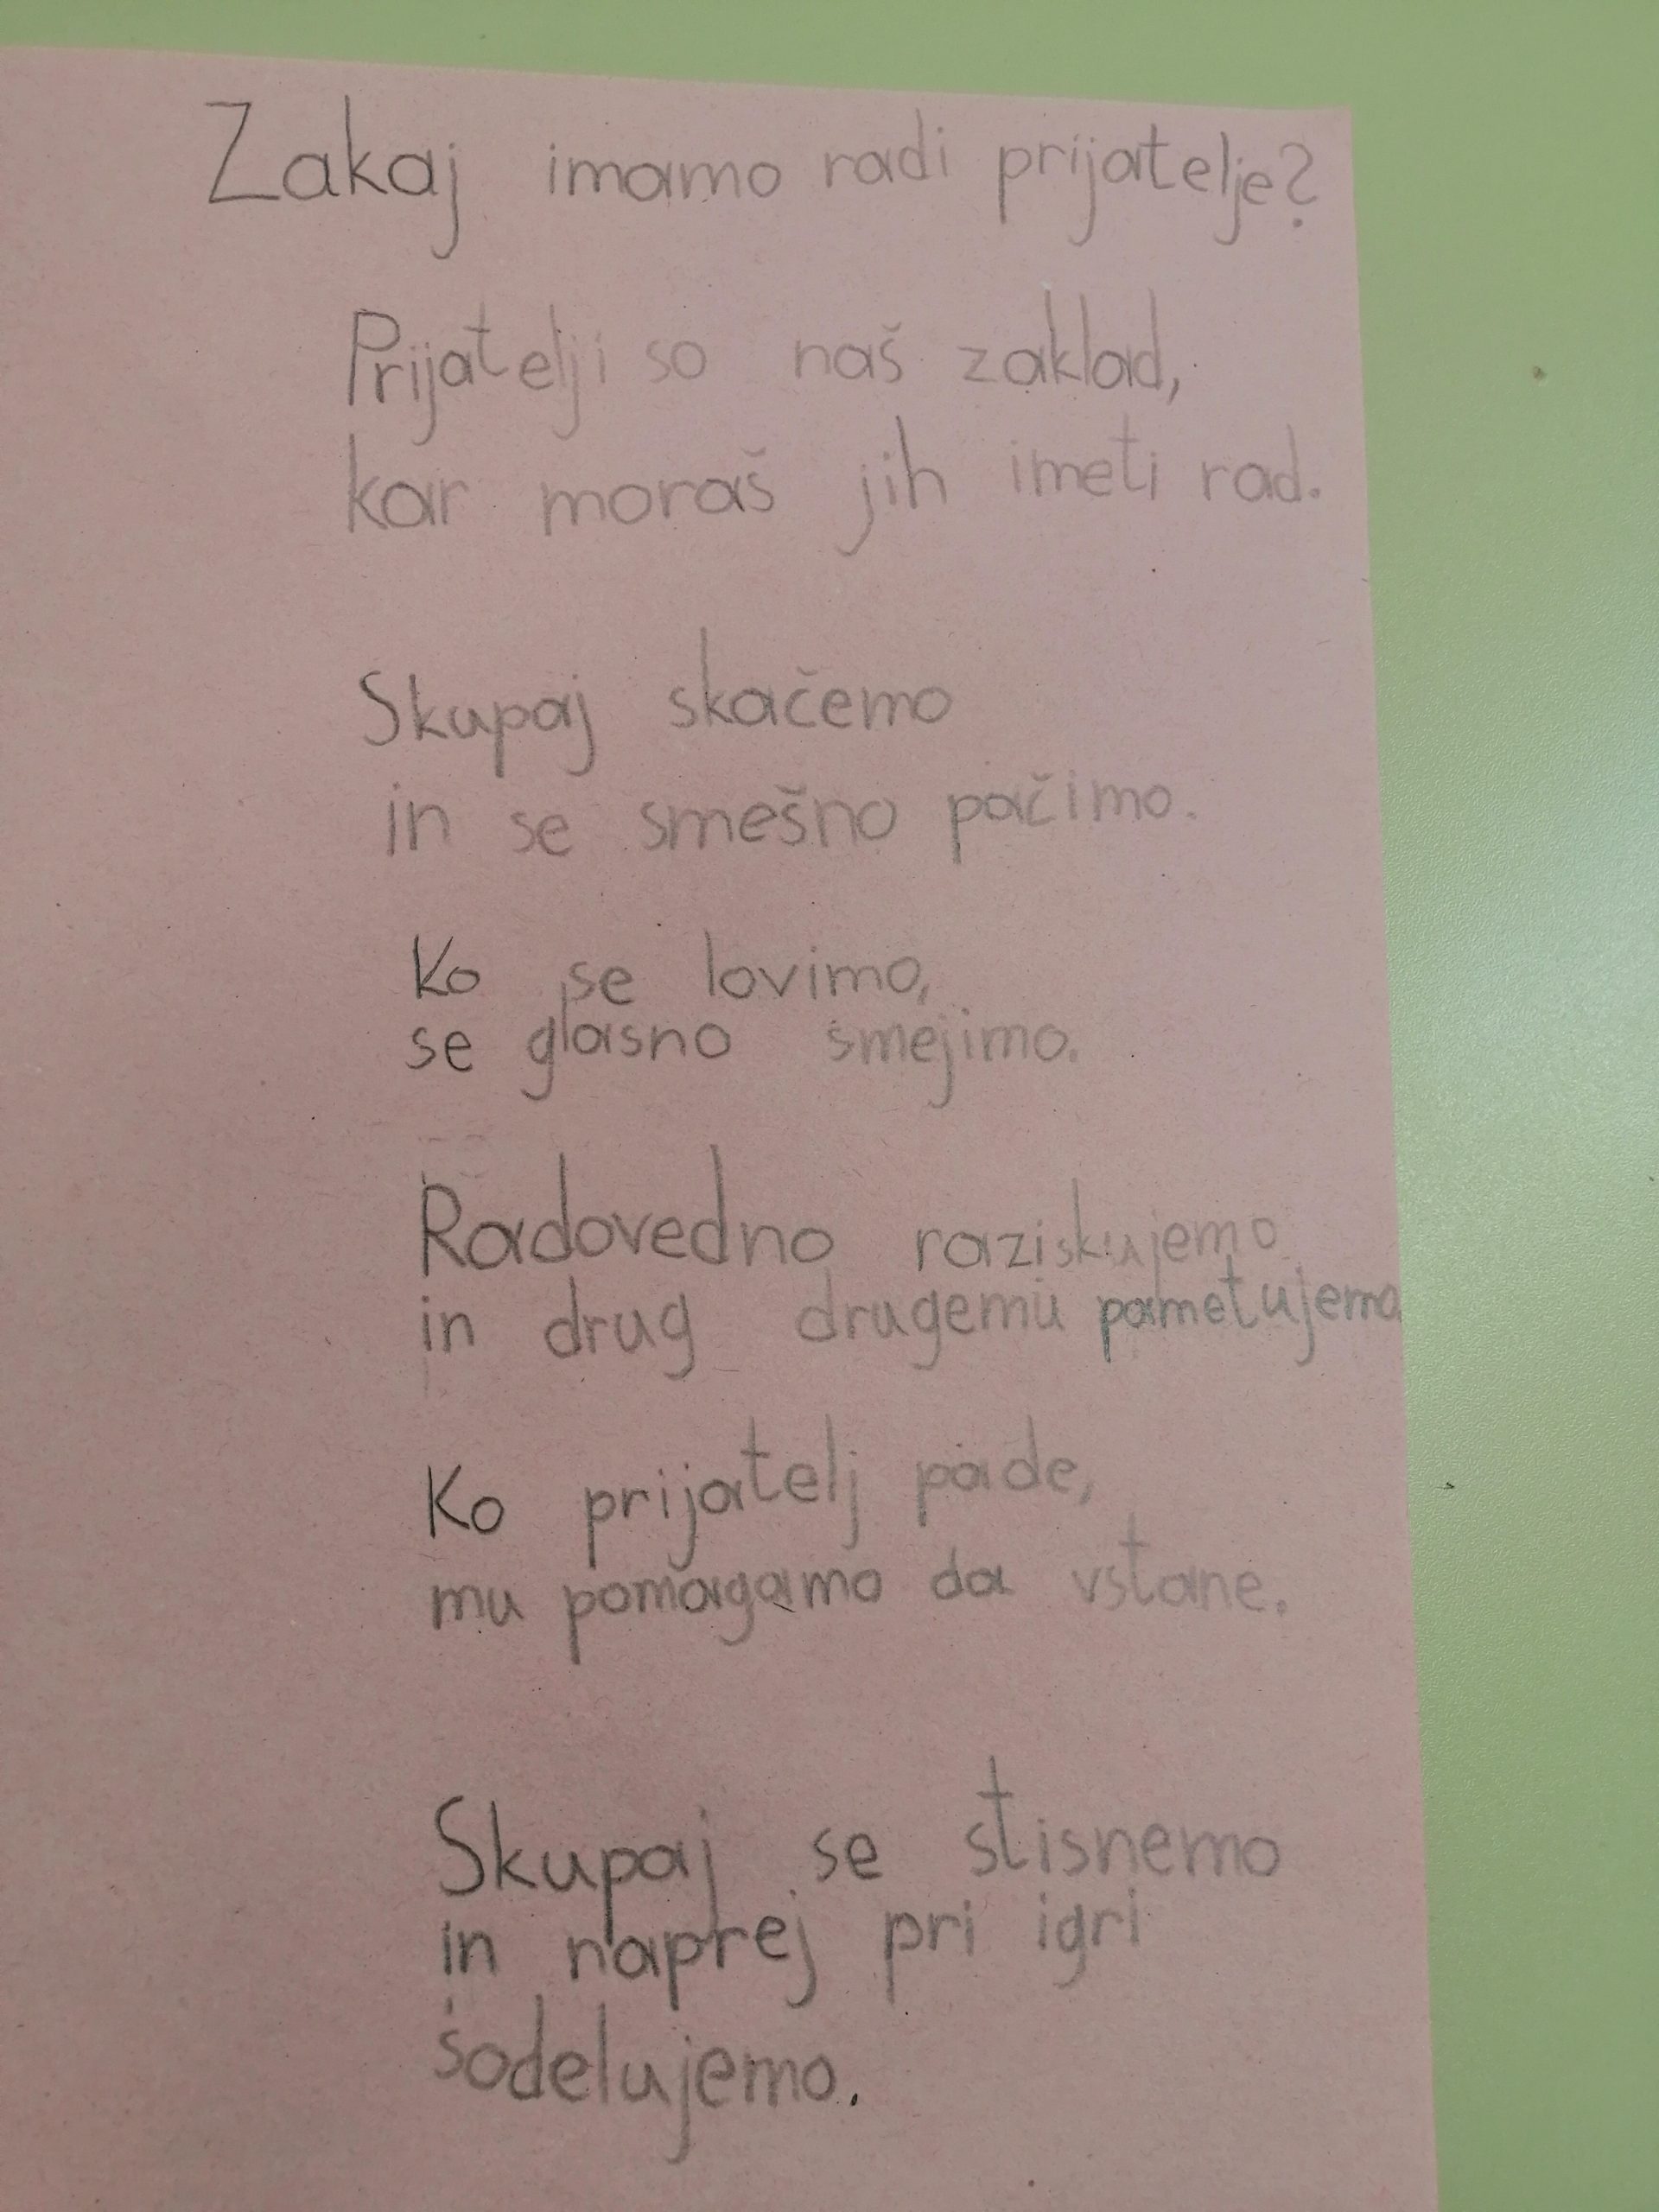 Zakaj imamo radi prijatelje?
Prijatelji so naš zaklad,
kar moraš jih imeti rad.
Skupaj skačemo
in se smešno pačimo.
Ko se lovimo,
se glasno smejimo.
Radovedno raziskujemo
in drug drugemu pametujemo.
Ko prijatelj pade,
mu pomagamo da vstane.
Skupaj se stisnemo
in naprej pri igri
sodelujemo.